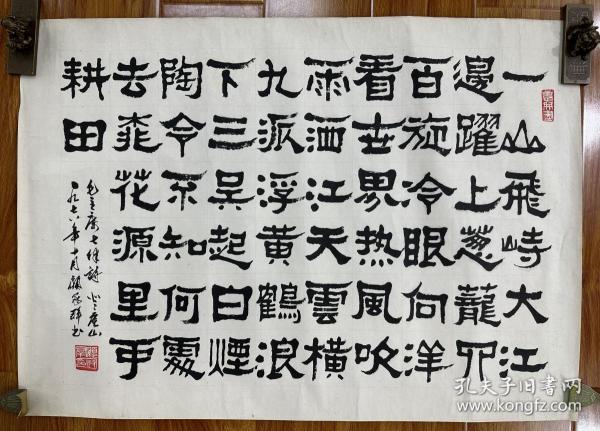 一山飛峙大江
邊躍上葱蘢四
百旋冷眼向洋
看世界热風吹
雨洒江天雲橫
九派浮黄鶴浪
下三吴起白煙
陶令不知何處
去桃花源里可
耕田
毛主席七律詩 登庐山
一九七六年十月 書
孔夫子旧书网
www.kongfz.com